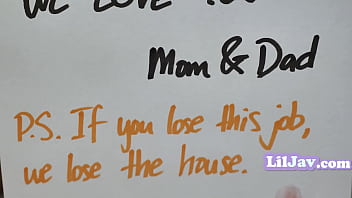 WE LOVE YOU
Mom & Dad
P.S. If you lose this job,
we lose the house.
LilJav.com